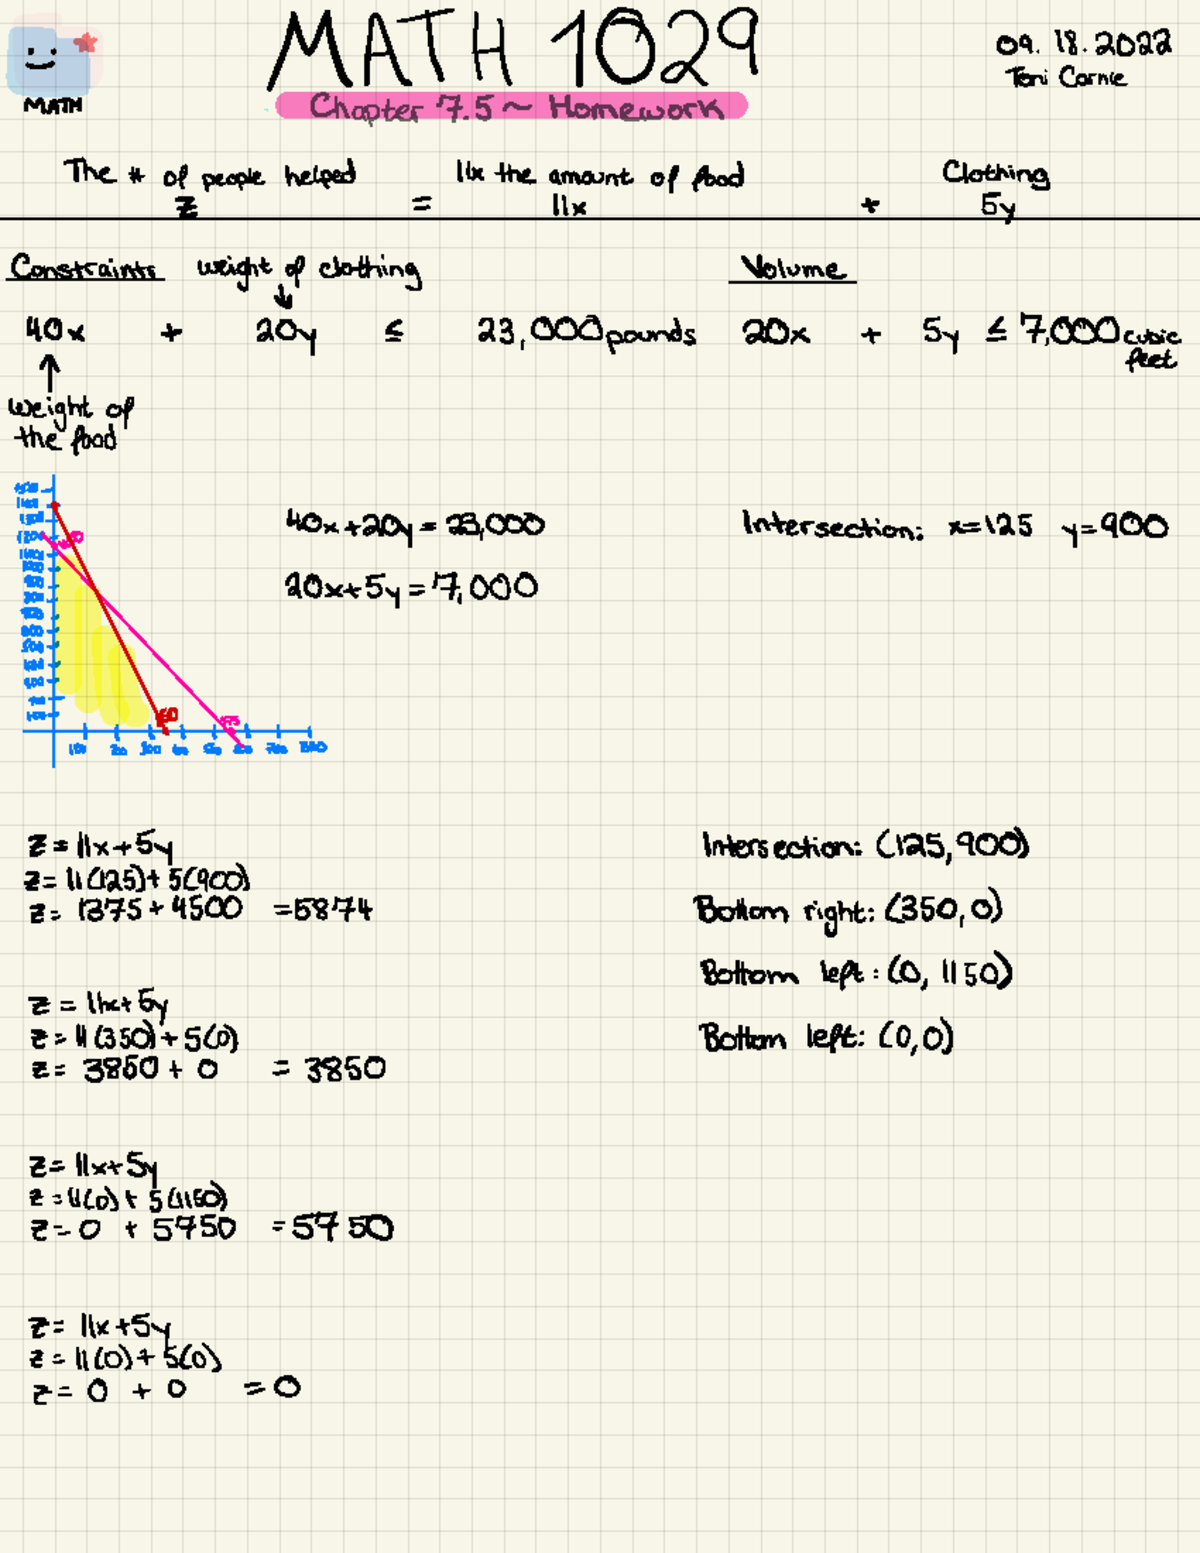 MATH 1029
09.18.2022
Toni Carnie
MATH
Chapter 7.5 ~ Homework
The # of people helped 11x the amount of food Clothing
z = 11x + 5y
Constraints weight of clothing Volume
40x + 20y ≤ 23,000 pounds 20x + 5y ≤ 7,000 cubic feet
weight of
the food
40x+20y = 23,000 Intersection: x=125 y=900
20x+5y=7,000
z = 11x+5y Intersection: (125,900)
z = 11(125)+ 5(900)
z = 1375 + 4500 =5874 Bottom right: (350,0)
Bottom left: (0, 1150)
z = 11x+5y
z = 11(350)+5(0) Bottom left: (0,0)
z = 3850 + 0 = 3850
z = 11x+5y
z = 11(0)+ 5(1150)
z = 0 + 5750 =5750
z = 11x+5y
z = 11(0)+5(0)
z = 0 + 0 =0